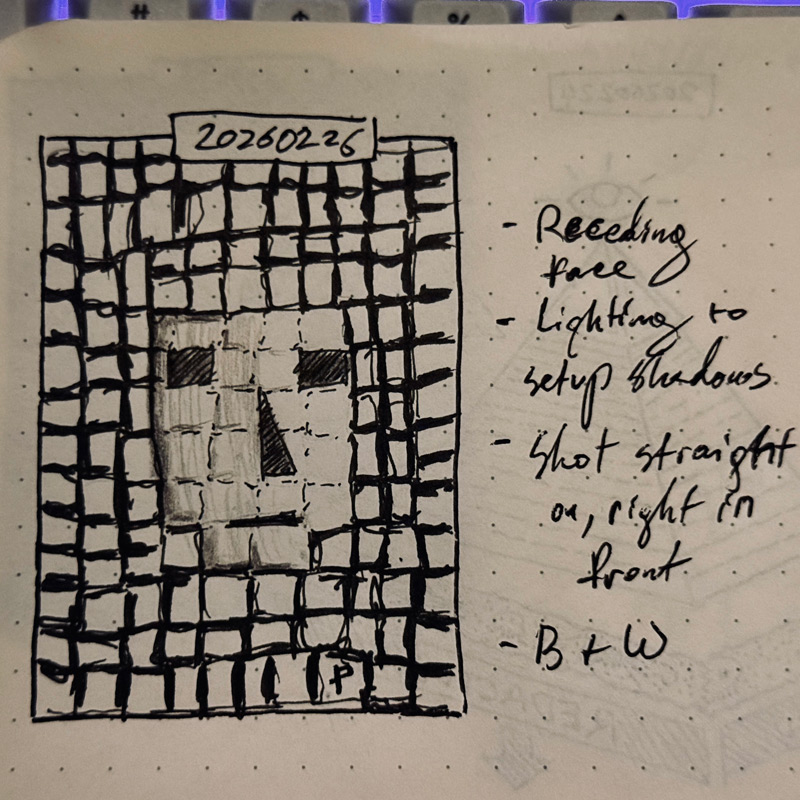 # $ % ^
20260224
20260226
- Receding
face
- Lighting to
setup shadows
- Shot straight
on, right in
front
- B + W
P